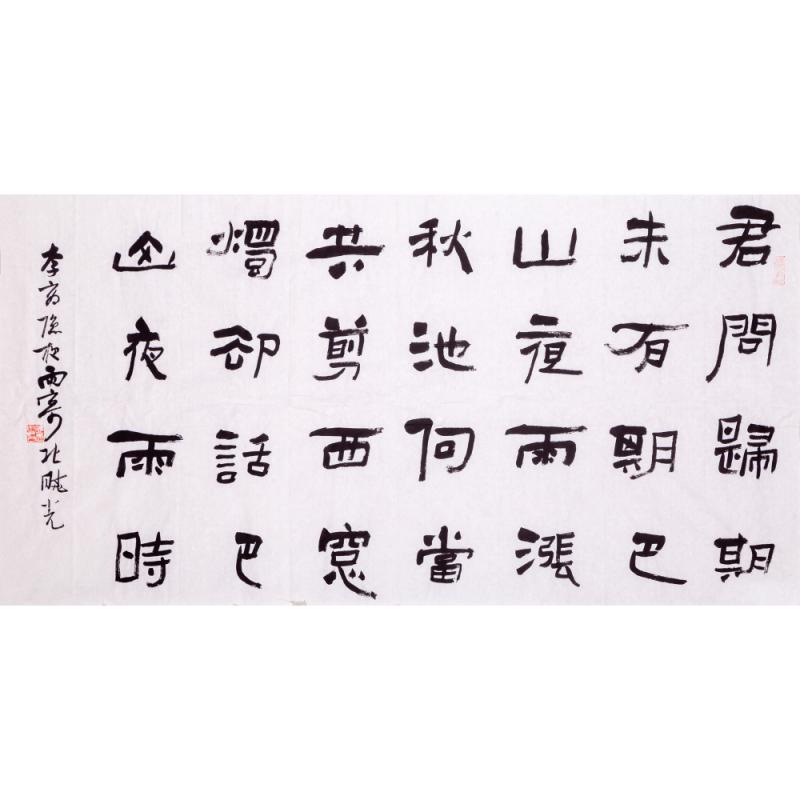 君問歸期
未有期巴
山夜雨漲
秋池何當
共剪西窓
燭却話巴
山夜雨時
李商隐夜雨寄北 晓光